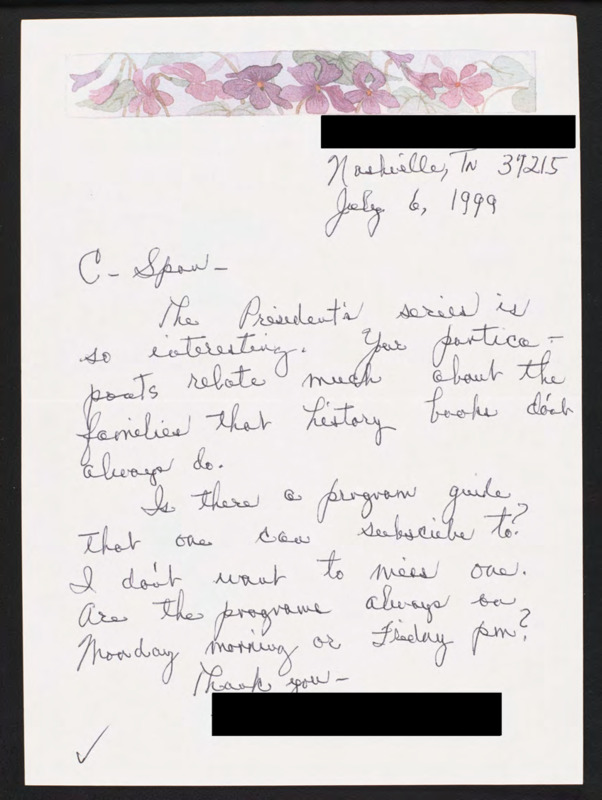 Nashville, TN 37215
July 6, 1999
C-Span-
The President's series is
so interesting. Your partica-
pants relate much about the
families that history books don't
always do.
Is there a program guide
that one can subscibe to?
I don't want to miss one.
Are the programs always on
Monday morning or Friday pm?
Thank you-